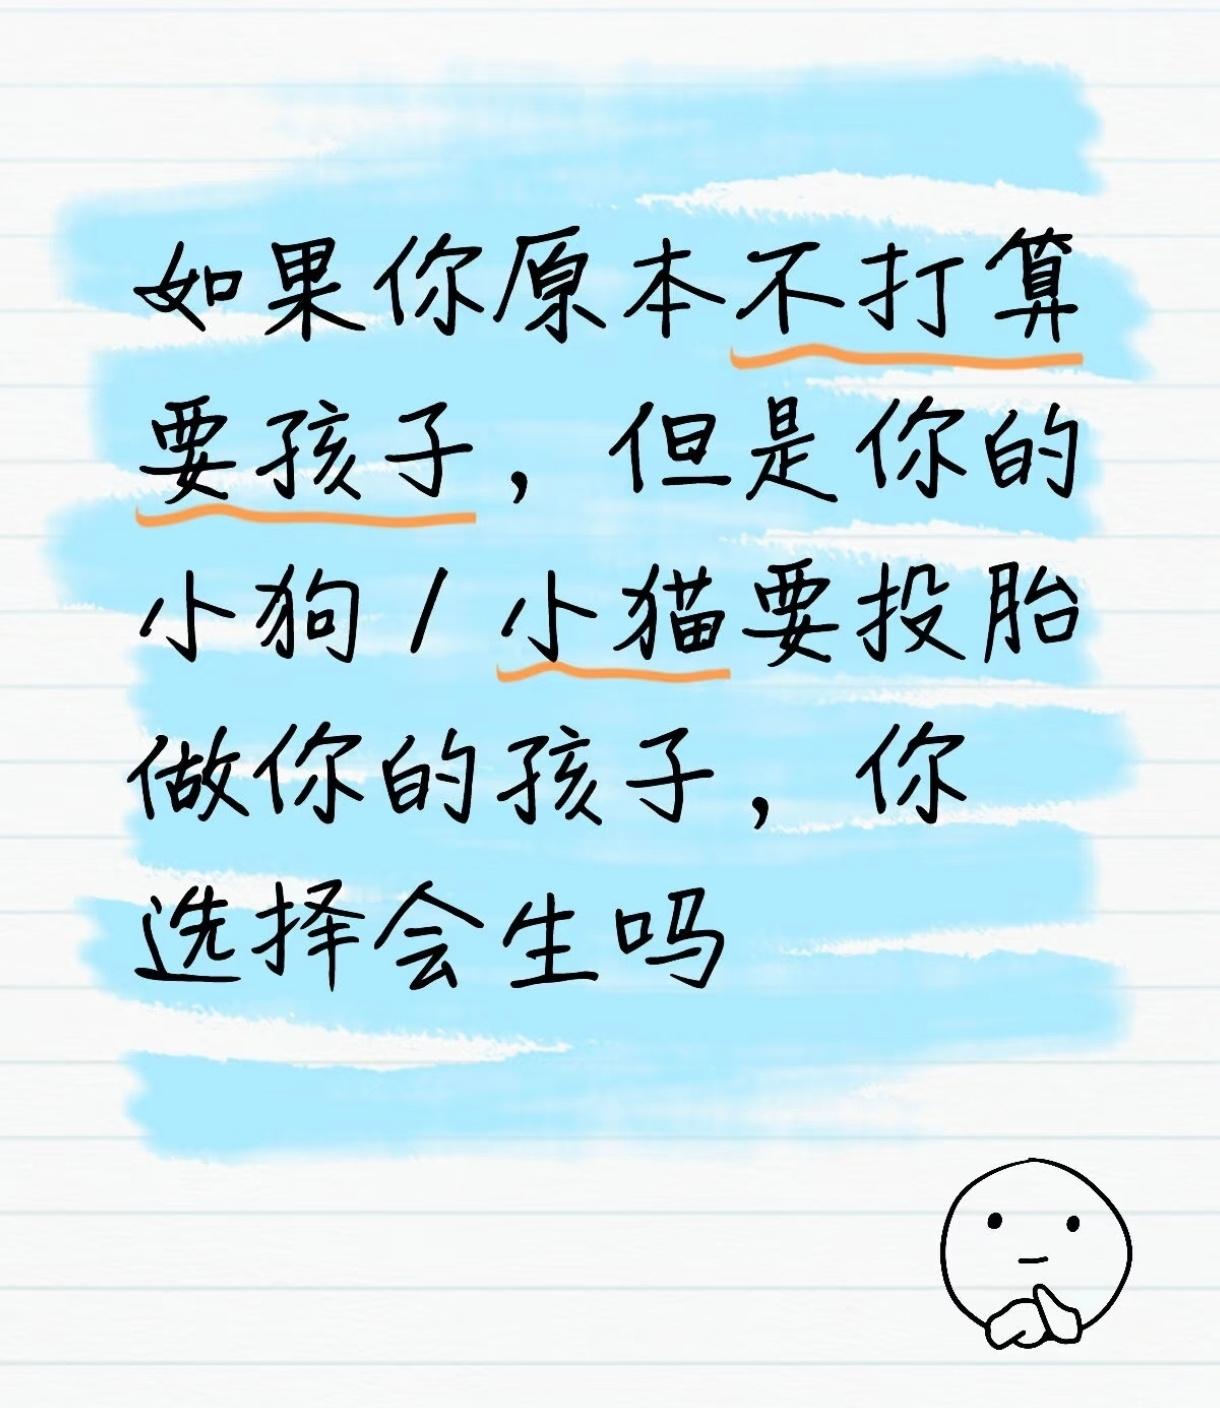 如果你原本不打算
要孩子，但是你的
小狗/小猫要投胎
做你的孩子，你
选择会生吗